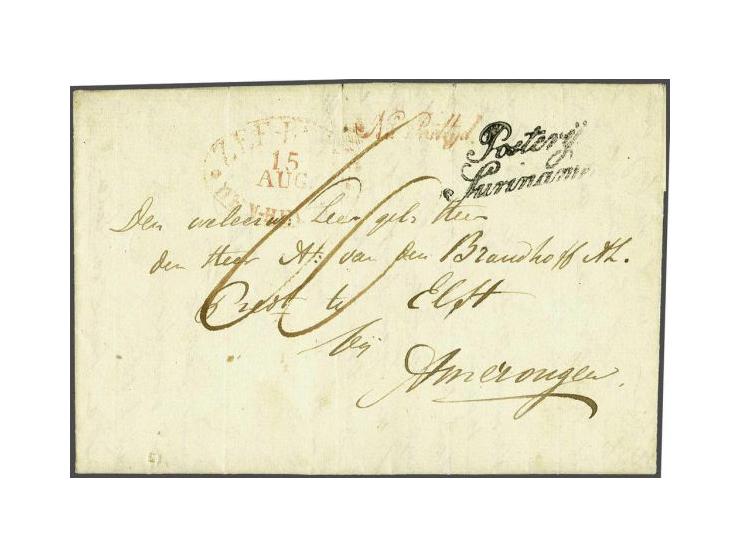 ZEE-
15
AUG
Na Posttyd
Postery
Suriname
Den weleerw. Zeer gel. Heer
den Heer At: van den Brandhoff Az.
Pred: te Elst
bij
Amerongen.